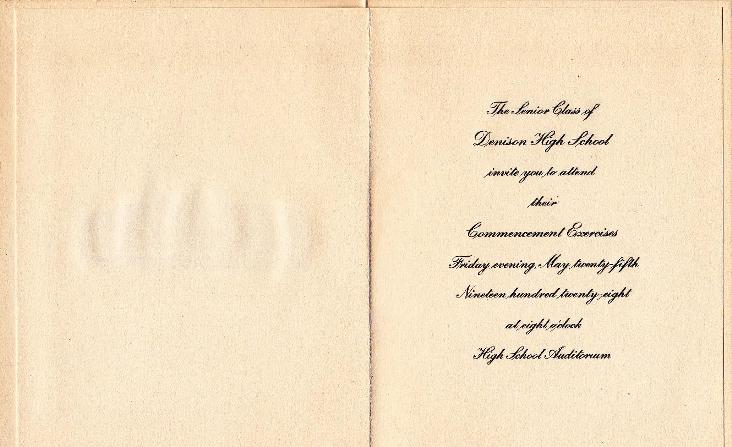 The Senior Class of
Denison High School
invite you to attend
their
Commencement Exercises
Friday evening, May twenty-fifth
Nineteen hundred twenty-eight
at eight o'clock
High School Auditorium